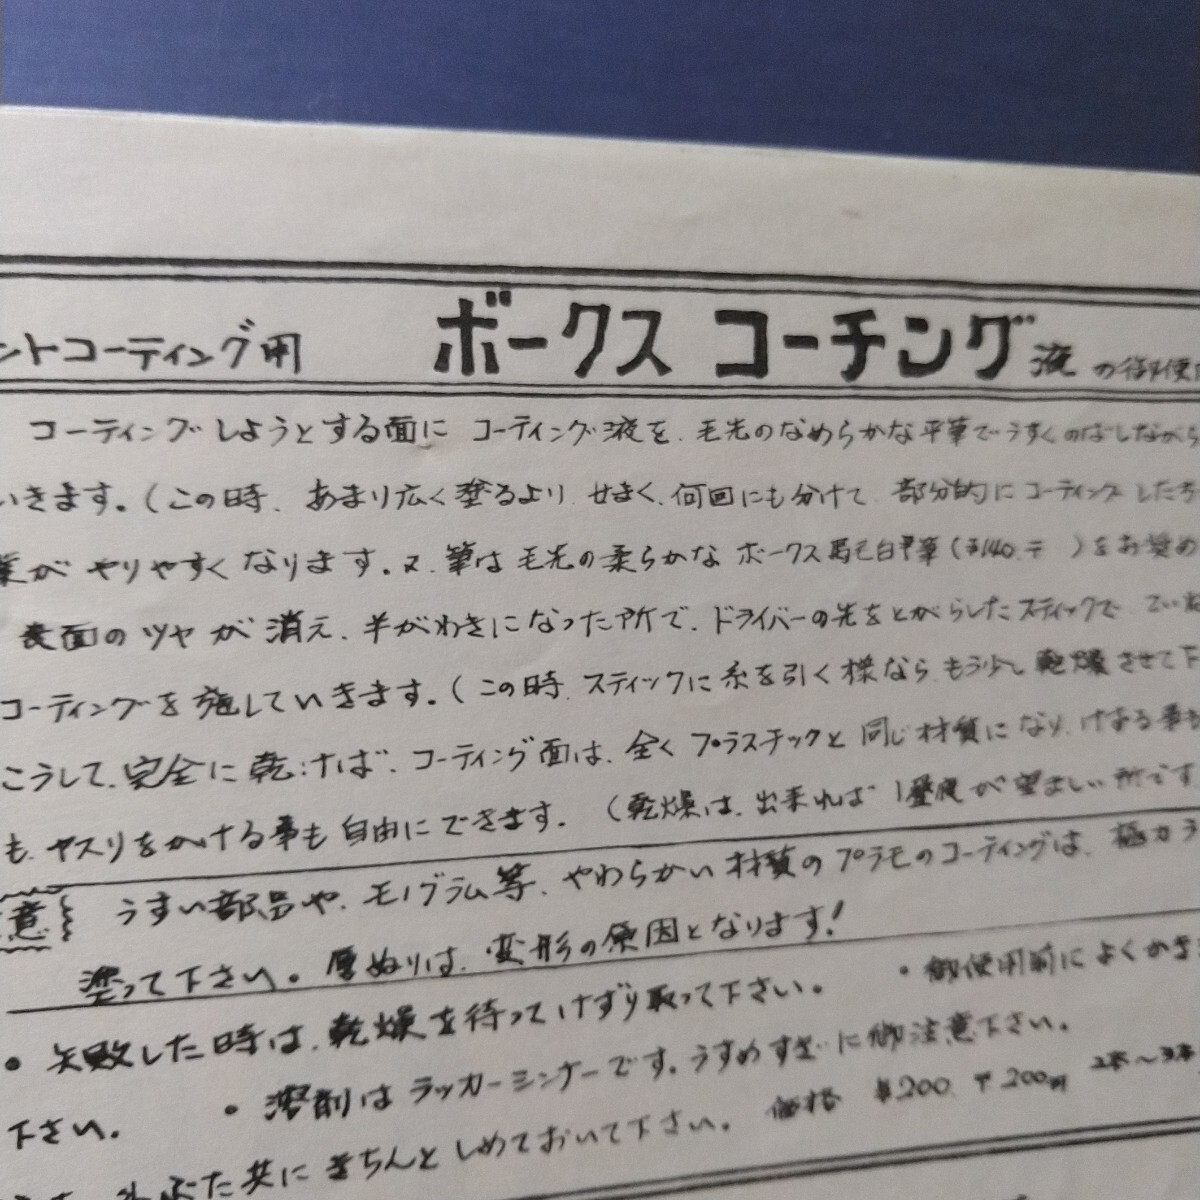 ントコーティング用 ボークス コーチング液の御使用
コーティングしようとする面に コーティング液を、毛先のなめらかな平筆でうすくのばしながら
いきます。(この時、あまり広く塗るより、せまく、何回にも分けて、部分的にコーティングした方
業が やりやすくなります。又、筆は毛先の柔らかな ボークス馬毛白平筆(¥140.〒 )をお奨め
表面のツヤが消え、半がわきになった所で、ドライバーの先をとがらしたスティックで、ていね
コーティングを施していきます。(この時、スティックに糸を引く様なら、もう少し乾燥させて下
こうして、完全に乾けば、コーティング面は、全くプラスチックと同じ材質になり、けずる事も
も、ヤスリをかける事も自由にできます。(乾燥は、出来れば1昼夜が望ましい所です
意 うすい部品や、モノグラム等、やわらかい材質のプラモのコーティングは、極力う
塗って下さい。厚ぬりは、変形の原因となります!
• 失敗した時は、乾燥を待ってけずり取って下さい。 • 御使用前によくかき
下さい。 • 溶剤はラッカーシンナーです。うすめすぎに御注意下さい。
ふた共にきちんとしめておいて下さい。 価格 ¥200. 〒200円 2本〜3本